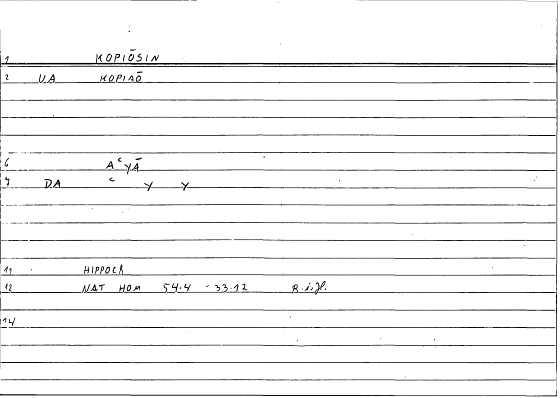 1 KOPIŌSIN
2 UA KOPIAŌ
6 AᶜYĀ
7 DA ᶜ Y Y
11 HIPPOCR
12 NAT HOM 54.4 - 33.12
14